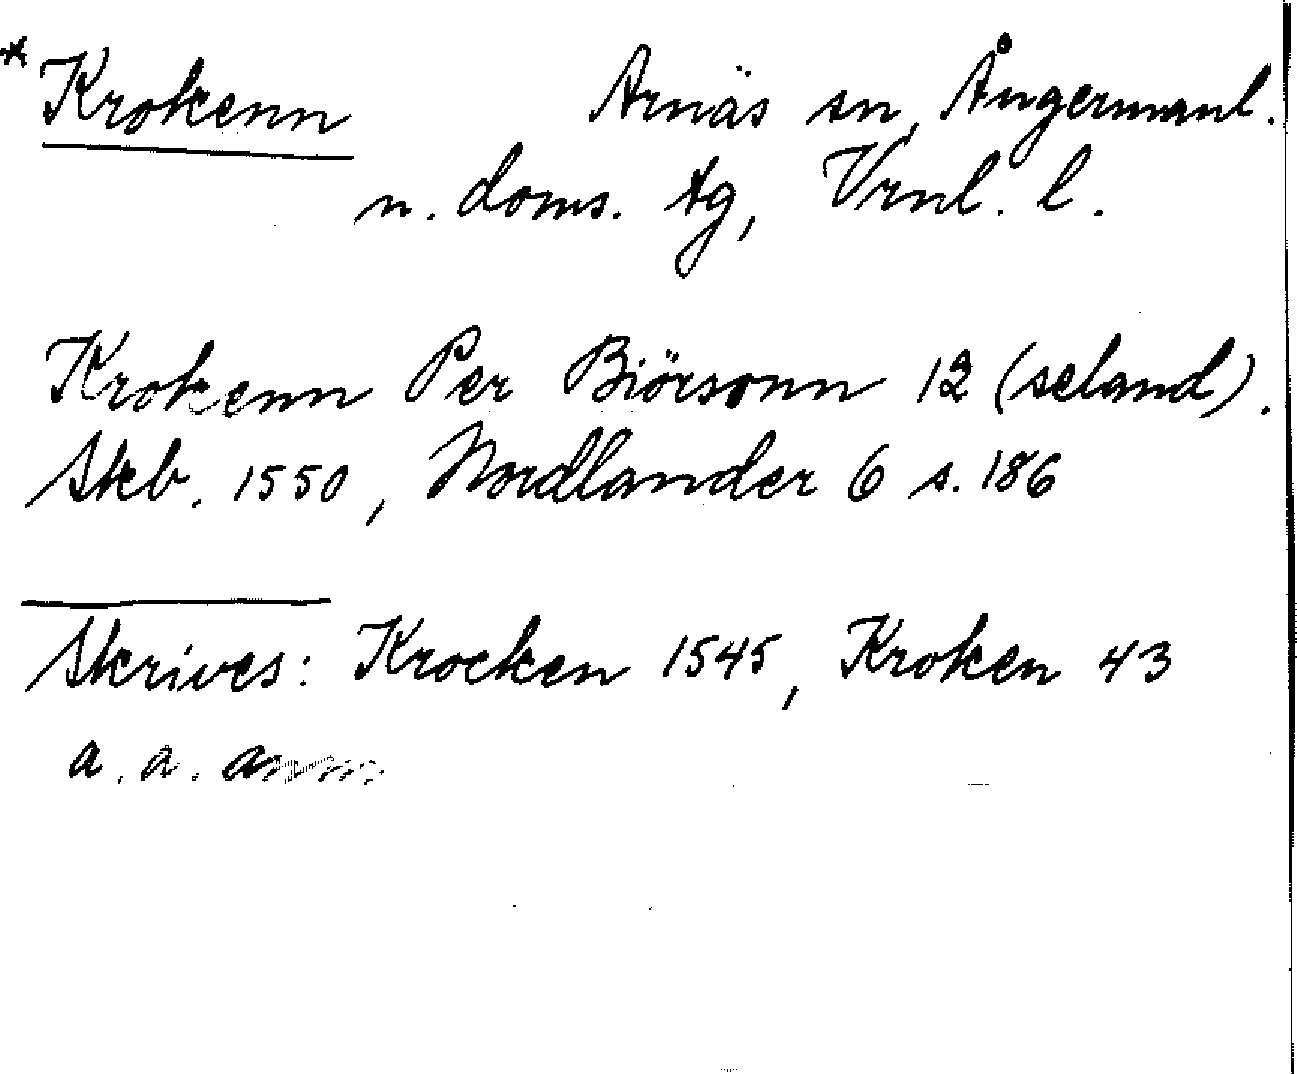 * Krokenn Arnäs sn, Ångermanl.
n. doms. tg, Vrnl. l.
Krokenn Per Biörsonn 12 (seland).
Skb. 1550, Nordlander 6 s. 186
Skrives: Krocken 1545, Kroken 43
a. a. anm